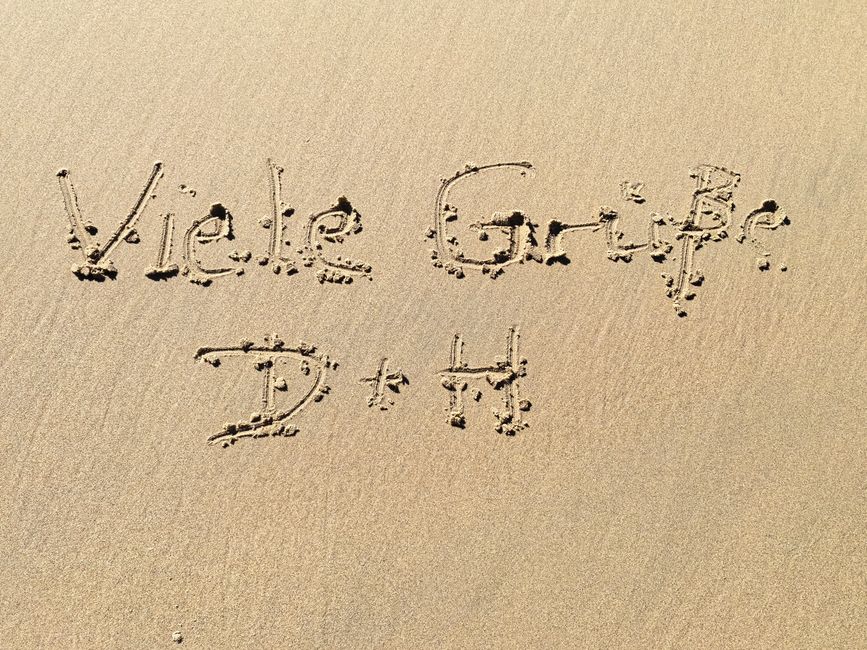 Viele Grüße
D + H